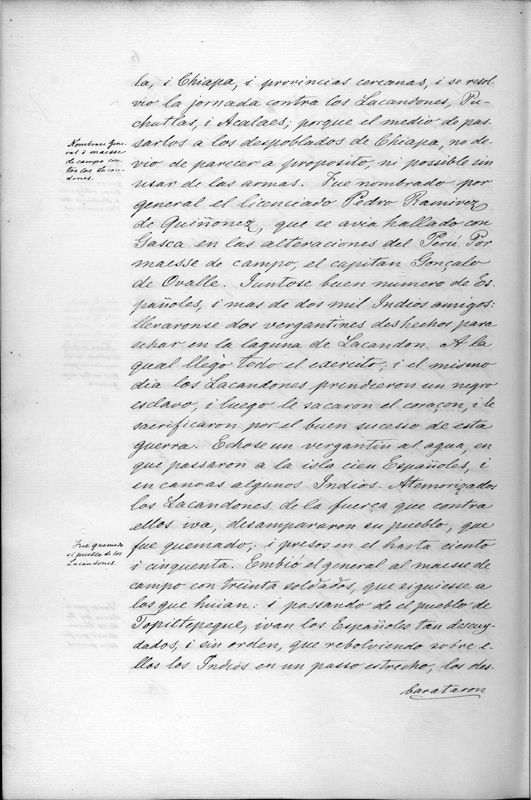 la, i Chiapa, i provincias cercanas, i se resol-
vio la jornada contra los Lacandones, Pu-
chutlas, i Acalaes; porque el medio de pas-
sarlos a los despoblados de Chiapa, no de-
vio de parecer a proposito, ni possible sin
usar de las armas. Fue nombrado por
general el licenciado Pedro Ramirez
de Quiñonez, que se avia hallado con
Gasca en las alteraciones del Perú. Por
maesse de campo, el capitan Gonçalo
de Ovalle. Juntose buen numero de Es-
pañoles, i mas de dos mil Indios amigos:
llevaronse dos vergantines deshechos para
echar en la laguna de Lacandon. A la
qual llegò todo el exercito; i el mismo
dia los Lacandones prendieron un negro
esclavo, i luego le sacaron el coraçon, i le
sacrificaron por el buen sucesso de esta
guerra. Echose un vergantin al agua, en
que passaron a la isla cien Españoles, i
en canoas algunos Indios. Atemorizados
los Lacandones de la fuerça que contra
ellos iva, desampararon su pueblo, que
fue quemado; i presos en el hasta ciento
i cinquenta. Embió el general al maesse de
campo con treinta soldados, que siguiesse a
los que huian: i passando de el pueblo de
Topiltepeque, ivan los Españoles tan descuy-
dados, i sin orden, que rebolviendo sobre e-
llos los Indios en un passo estrecho, los des-
barataron
Nombrase Gene-
ral i maesse
de campo con-
tra los Lacan-
dones.
Fue quemado
el pueblo de los
Lacandones.